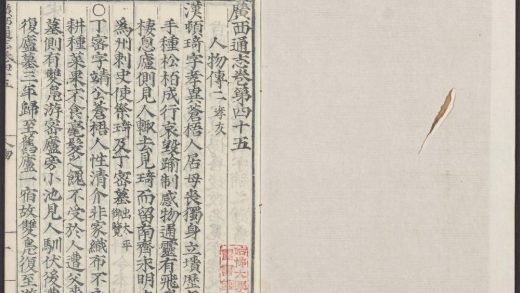 廣西通志卷第四十五
人物傳二 孝友
漢頓琦字孝異蒼梧人居母喪獨身立墳歷
手種松柏成行哀毀踰制感物通靈有飛
棲息廬側見人輙去見琦而留南齊永明
為州刺史使祭琦及丁密墓 出太平御覽
〇丁密字靖公蒼梧人性清介非家織布不
耕種菜果不食毫髮之餽不受於人遭父
墓側有雙鳧游密廬旁小池見人馴伏後
復廬墓三年歸至舊廬一宿故雙鳧復至